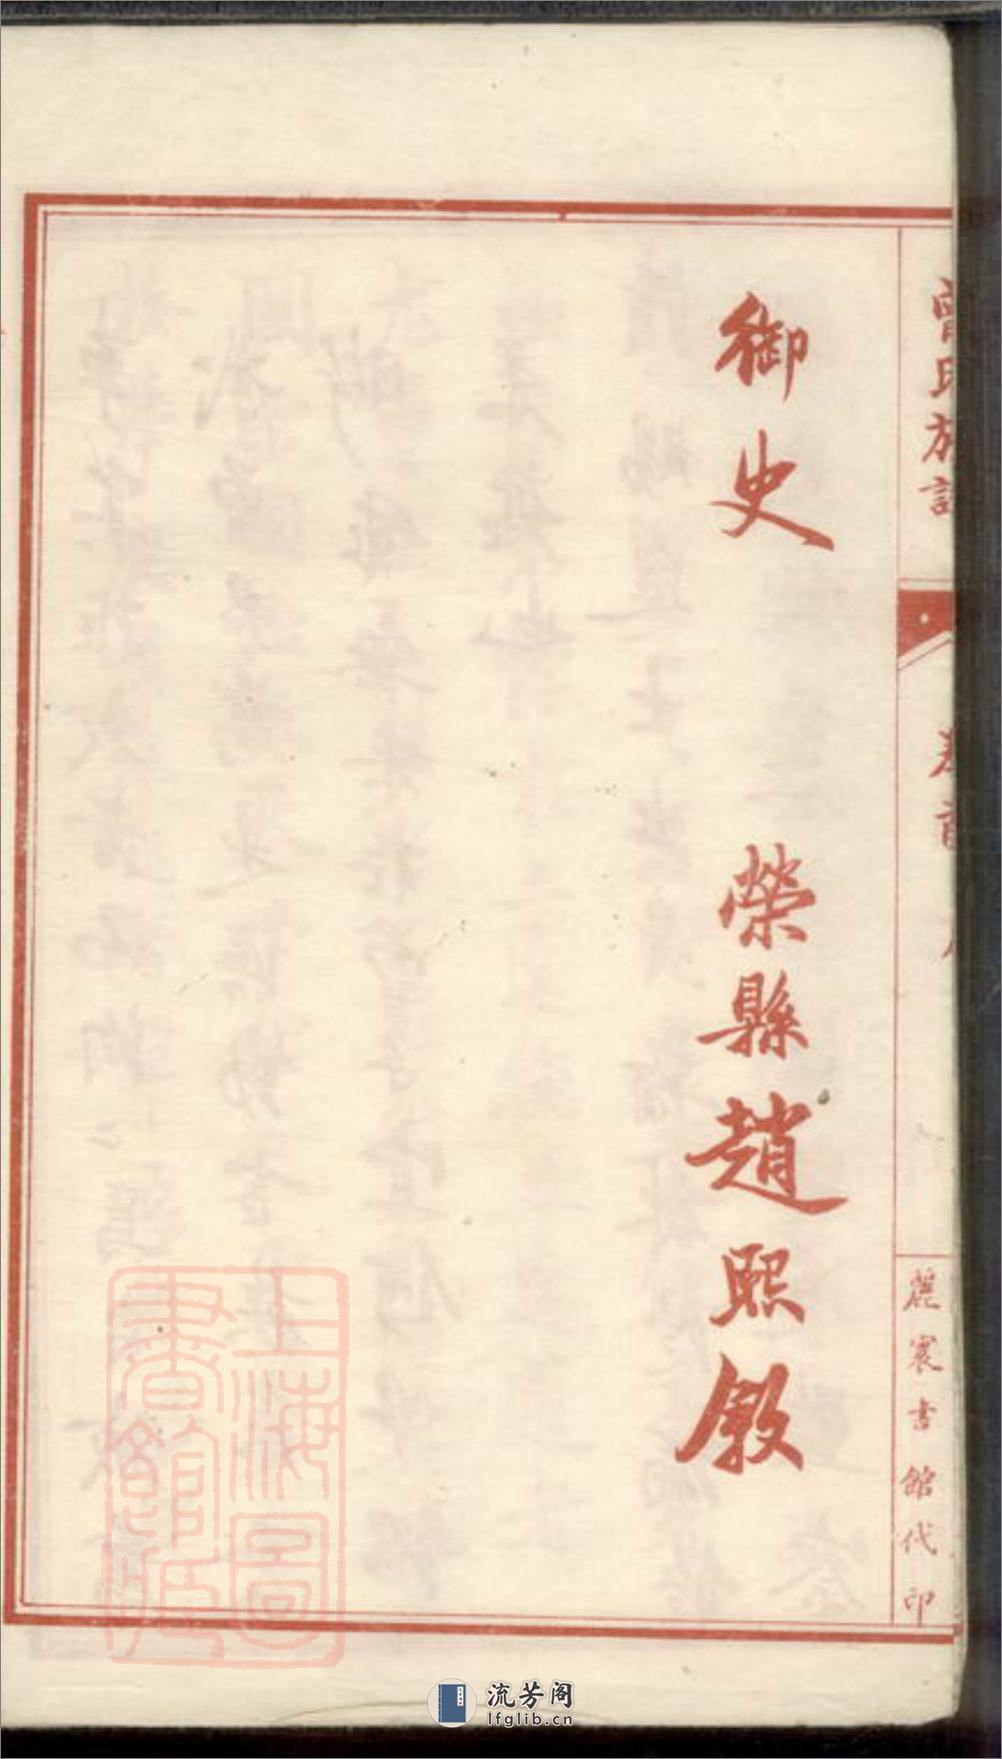 曾氏族譜
卷首
麗寰書館代印
御史 榮縣趙熙敘
上海圖書館藏
流芳阁
lfglib.cn